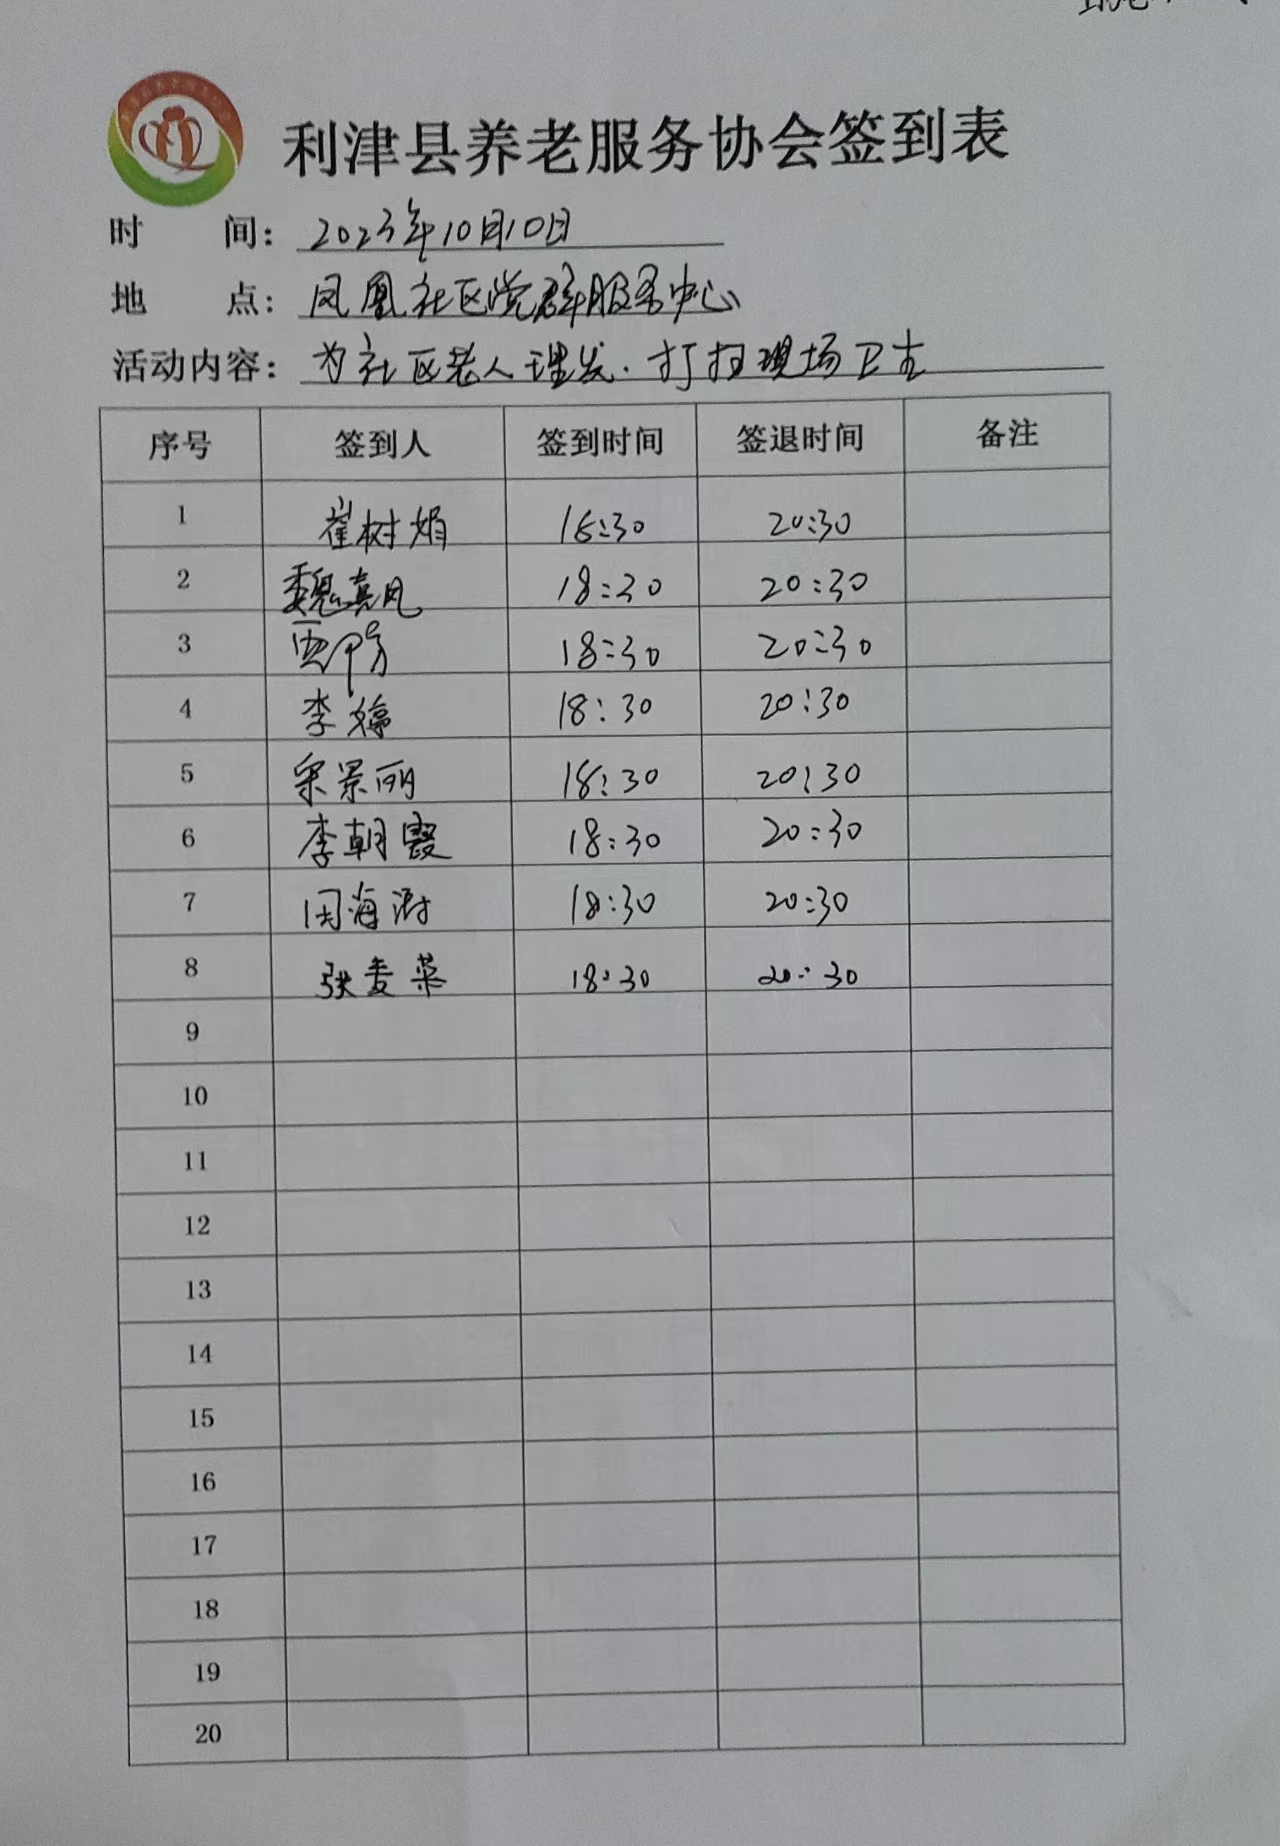 利津县养老服务协会签到表
时 间: 2023年10月10日
地 点: 凤凰社区党群服务中心
活动内容: 为社区老人理发.打扫现场卫生
序号 签到人 签到时间 签退时间 备注
1 崔树娟 18:30 20:30
2 魏真凤 18:30 20:30
3 18:30 20:30
4 李婷 18:30 20:30
5 宋景丽 18:30 20:30
6 李朝霞 18:30 20:30
7 周海 18:30 20:30
8 张麦菜 18:30 20:30
9
10
11
12
13
14
15
16
17
18
19
20